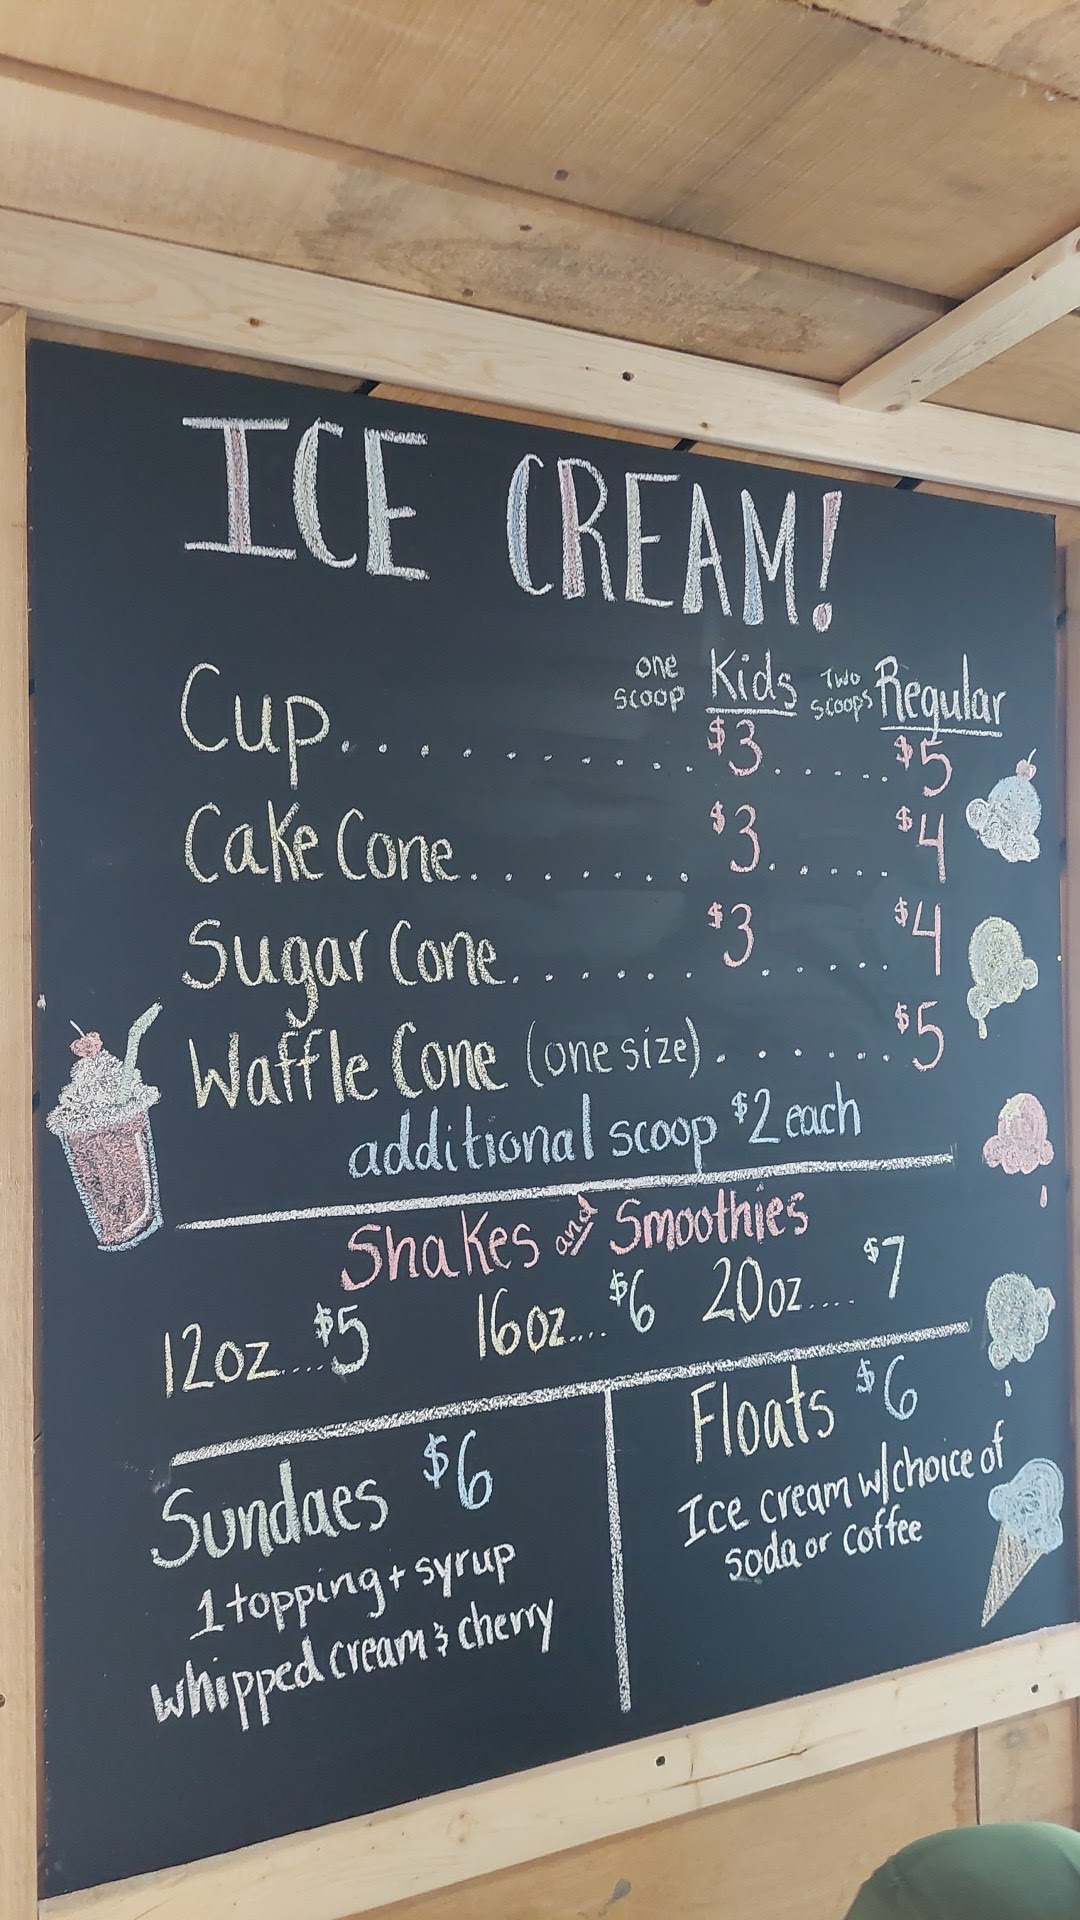 ICE CREAM!
one scoop Kids Two scoops Regular
Cup............ $3...... $5
Cake Cone........ $3..... $4
Sugar Cone....... $3...... $4
Waffle Cone (one size)....... $5
additional scoop $2 each
Shakes and Smoothies
12oz.... $5 16oz.... $6 20oz.... $7
Sundaes $6
1 topping + syrup
whipped cream & cherry
Floats $6
Ice cream w/choice of
soda or coffee